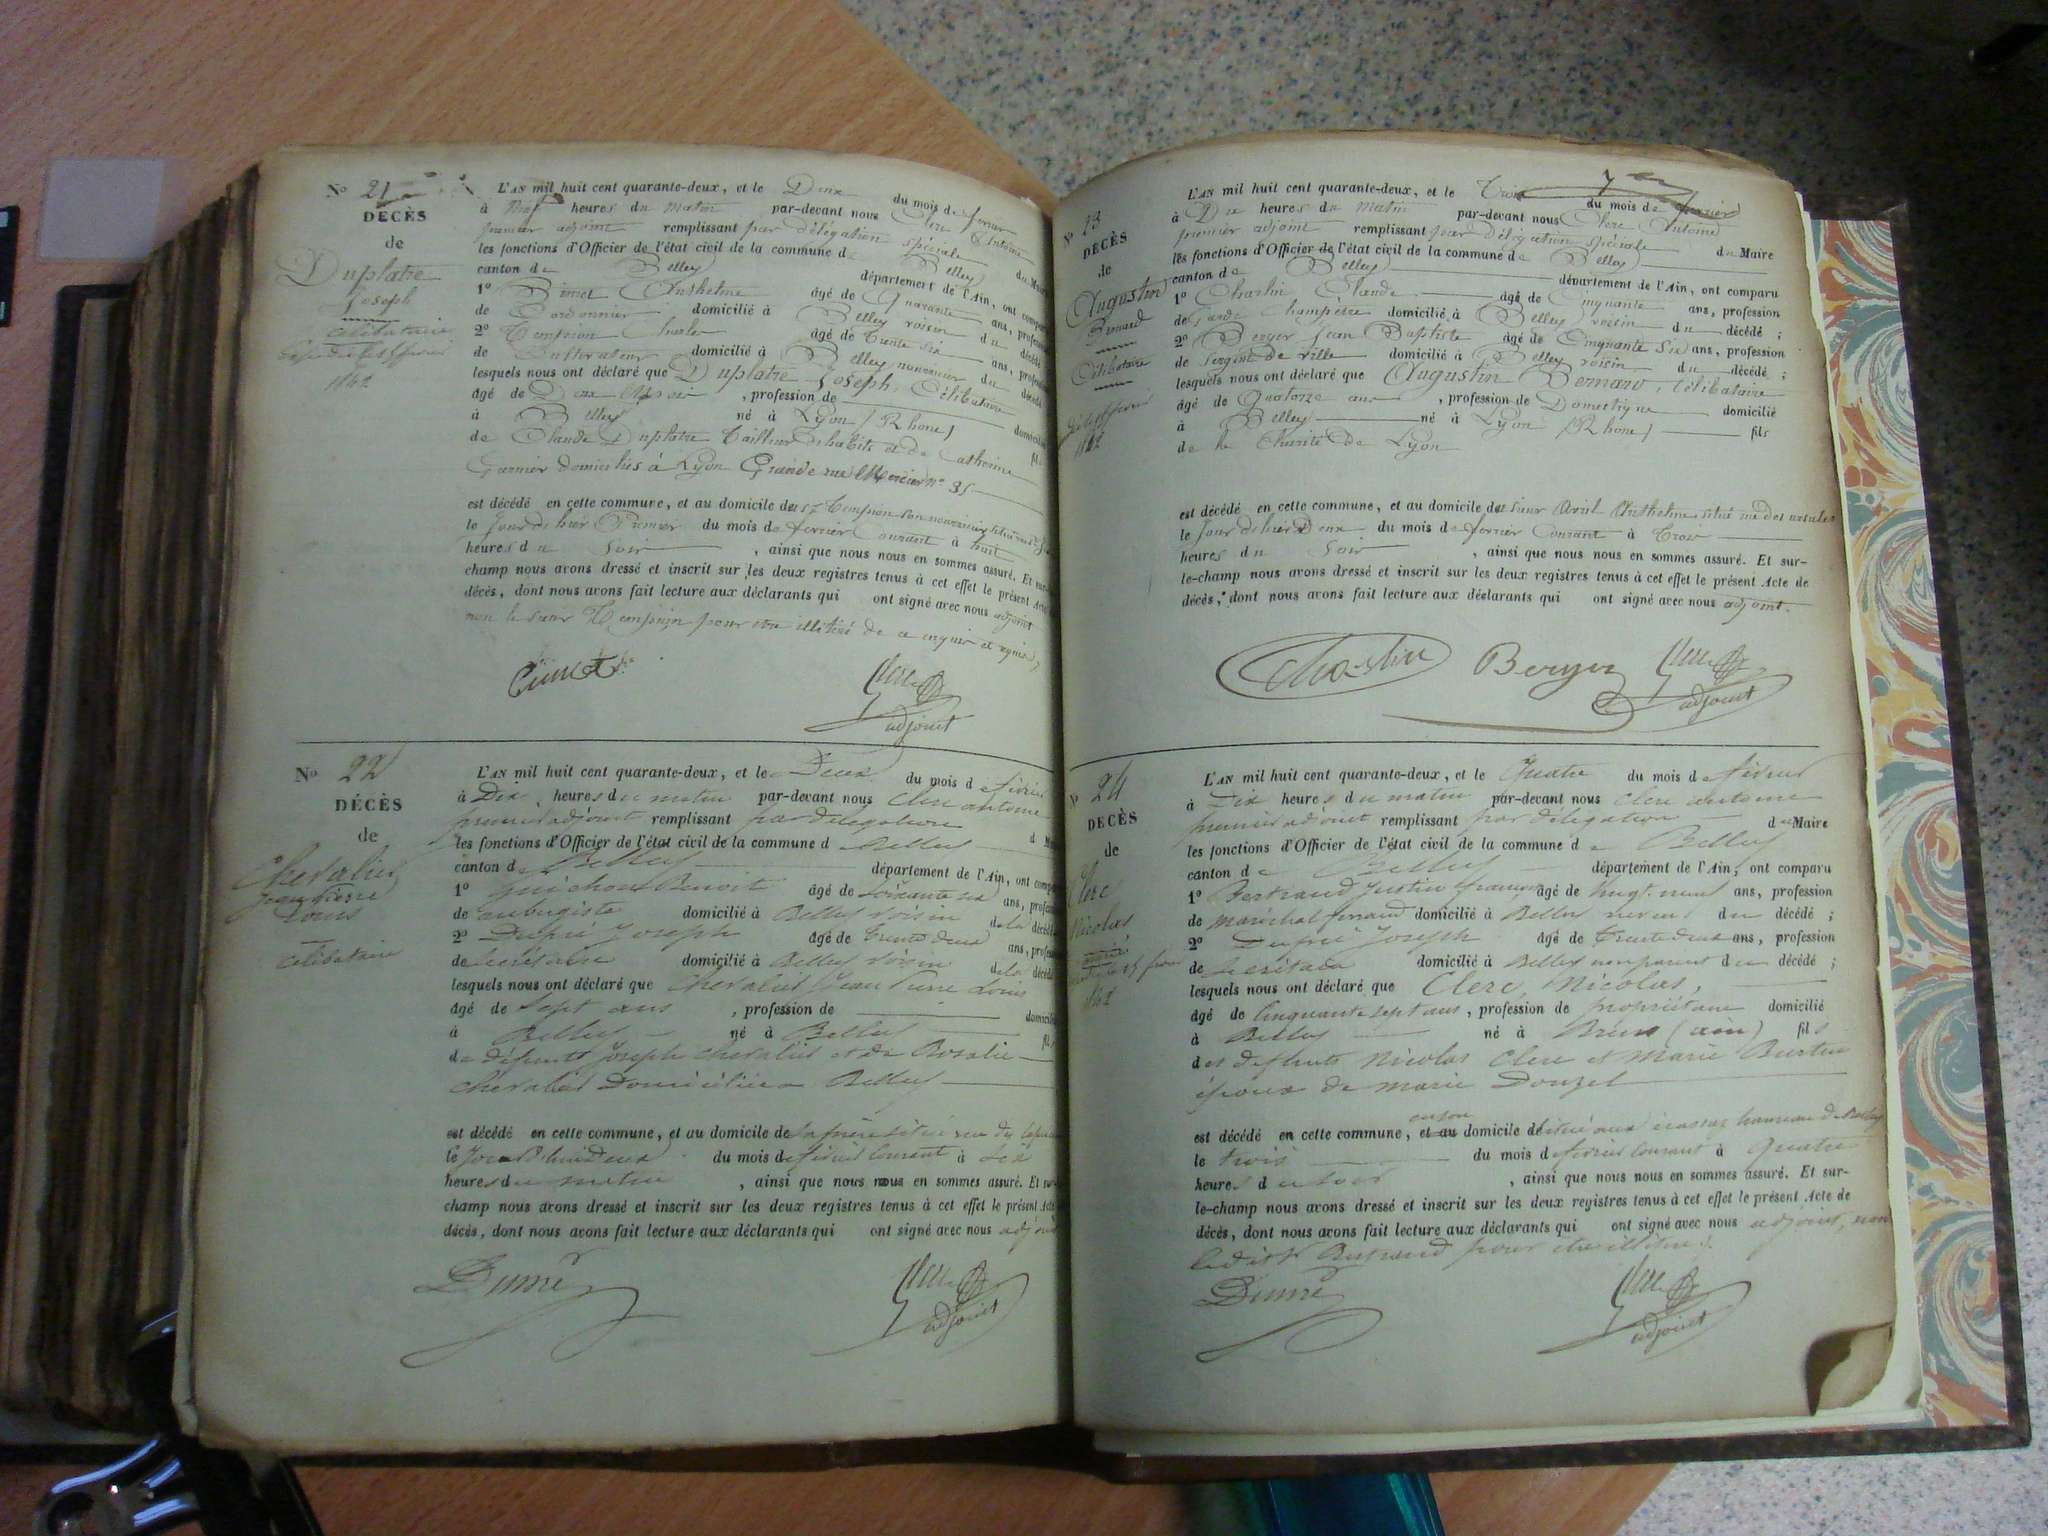 N° 21
DÉCÈS
de
Duplatre
Joseph
célibataire
1842
L'AN mil huit cent quarante-deux, et le Deux du mois de février
à neuf heures du matin par-devant nous Clerc Antoine
premier adjoint remplissant par délégation spéciale du Maire
les fonctions d'Officier de l'état civil de la commune de Belley
canton de Belley département de l'Ain, ont comparu
1° Anthelme âgé de Quarante ans, profession
de Cordonnier domicilié à Belley voisin du décédé
2° Charles âgé de trente six ans, profession
de Cultivateur domicilié à Belley nourricier du décédé
lesquels nous ont déclaré que Duplatre Joseph, Célibataire
âgé de Deux Mois, profession de domicilié
à Belley né à Lyon (Rhône) fils
de Claude Duplatre Tailleur d'habits et de Catherine
Garnier domiciliés à Lyon Grande rue Mercière n° 35
est décédé en cette commune, et au domicile du Sr son nourricier situé
le jour d'hier Premier du mois de février Courant à huit
heures du Soir, ainsi que nous nous en sommes assuré. Et sur-
champ nous avons dressé et inscrit sur les deux registres tenus à cet effet le présent Acte
décès, dont nous avons fait lecture aux déclarants qui ont signé avec nous adjoint
non le sieur pour être illitéré de ce enquis et requis,
Clerc
adjoint
N° 22
DÉCÈS
de
Chevalier
Jean Pierre
Louis
célibataire
L'AN mil huit cent quarante-deux, et le Deux du mois de février
à Dix heures du matin par-devant nous Clerc antoine
premier adjoint remplissant par délégation d Maire
les fonctions d'Officier de l'état civil de la commune de Belley
canton de Belley département de l'Ain, ont comparu
1° Guichon Benoit âgé de soixante six ans, profession
de aubergiste domicilié à Belley voisin de la décédé
2° Dupré Joseph âgé de trente deux ans, profession
de secrétaire domicilié à Belley voisin de la décédé
lesquels nous ont déclaré que Chevalier Jean Pierre Louis
âgé de sept ans, profession de domicilié
à Belley né à Belley fils
de défunt Joseph Chevalier et de Rosalie
Chevalier domiciliée à Belley
est décédé en cette commune, et au domicile de sa mère situé rue des
le jourd'hui deux du mois de février courant à six
heures du matin, ainsi que nous nous en sommes assuré. Et sur-
champ nous avons dressé et inscrit sur les deux registres tenus à cet effet le présent Acte
décès, dont nous avons fait lecture aux déclarants qui ont signé avec nous adjoint
Clerc
adjoint
N° 23
DÉCÈS
de
Augustin
Bernard
Célibataire
1842
L'AN mil huit cent quarante-deux, et le Trois du mois de février
à Dix heures du matin par-devant nous Clerc Antoine
premier adjoint remplissant par délégation spéciale du Maire
les fonctions d'Officier de l'état civil de la commune de Belley
canton de Belley département de l'Ain, ont comparu
1° Charlin Claude âgé de Cinquante ans, profession
de garde Champêtre domicilié à Belley voisin du décédé ;
2° Berger Jean Baptiste âgé de Cinquante six ans, profession
de sergent de ville domicilié à Belley voisin du décédé ;
lesquels nous ont déclaré que Augustin Bernard, Célibataire
âgé de Quatorze ans, profession de Domestique domicilié
à Belley né à Lyon (Rhône) fils
de la Charité de Lyon
est décédé en cette commune, et au domicile du sieur Anthelme situé rue des ursules
le jour d'hier Deux du mois de février Courant à Trois
heures du Soir, ainsi que nous nous en sommes assuré. Et sur-
le-champ nous avons dressé et inscrit sur les deux registres tenus à cet effet le présent Acte de
décès, dont nous avons fait lecture aux déclarants qui ont signé avec nous adjoint.
Berger Clerc
adjoint
N° 24
DÉCÈS
de
Clerc
Nicolas
marié
1842
L'AN mil huit cent quarante-deux, et le Quatre du mois de février
à Dix heures du matin par-devant nous Clerc antoine
premier adjoint remplissant par délégation du Maire
les fonctions d'Officier de l'état civil de la commune de Belley
canton de Belley département de l'Ain, ont comparu
1° Bertrand Justin François âgé de vingt neuf ans, profession
de maréchal ferrand domicilié à Belley neveu du décédé ;
2° Dupré Joseph âgé de trente deux ans, profession
de secrétaire domicilié à Belley non parent du décédé ;
lesquels nous ont déclaré que Clerc Nicolas,
âgé de cinquante sept ans, profession de propriétaire domicilié
à Belley né à (ain) fils
des defunts Nicolas Clerc et Marie
époux de marie Douzel
est décédé en cette commune, et au domicile situé aux hameau de Belley
le trois du mois de février courant à quatre
heures du soir, ainsi que nous nous en sommes assuré. Et sur-
le-champ nous avons dressé et inscrit sur les deux registres tenus à cet effet le présent Acte de
décès, dont nous avons fait lecture aux déclarants qui ont signé avec nous adjoint, non
ledit Sr Bertrand pour être illitéré.
Clerc
adjoint